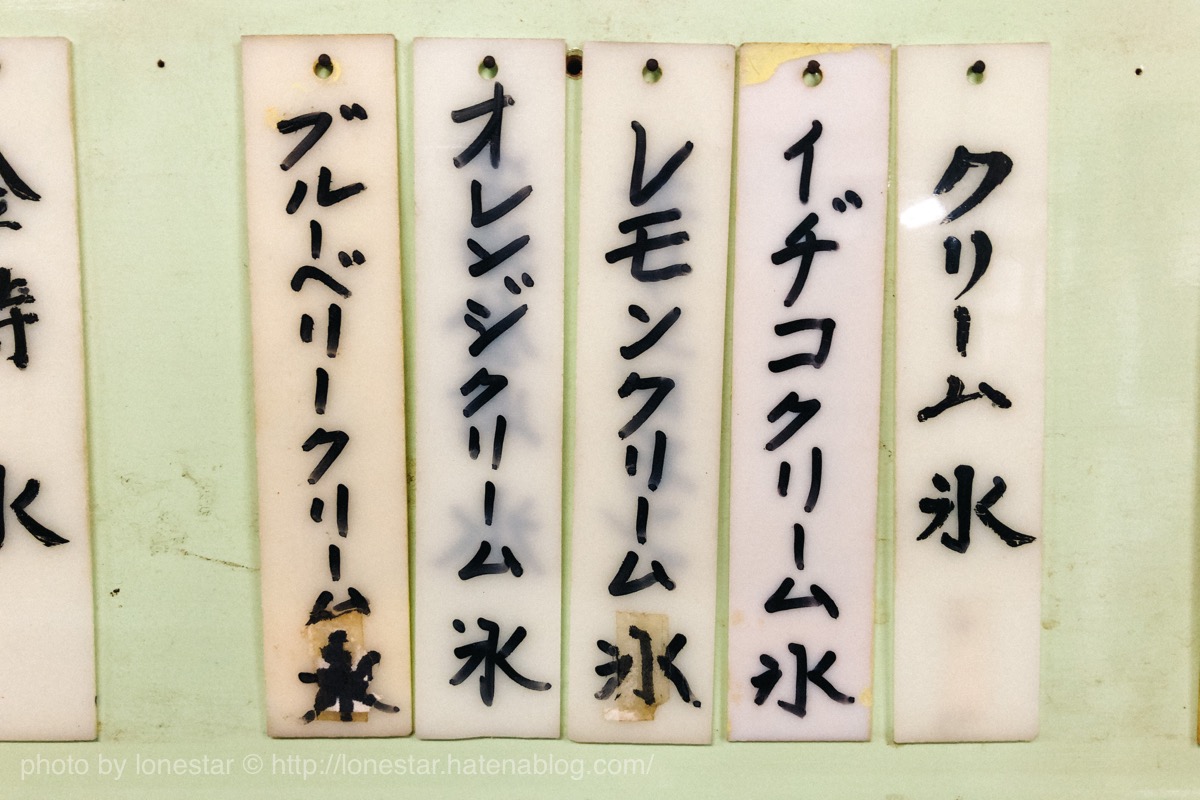 クリーム氷
イヂコクリーム氷
レモンクリーム氷
オレンジクリーム氷
ブルーベリークリーム氷
金時氷
photo by lonestar © http://lonestar.hatenablog.com/